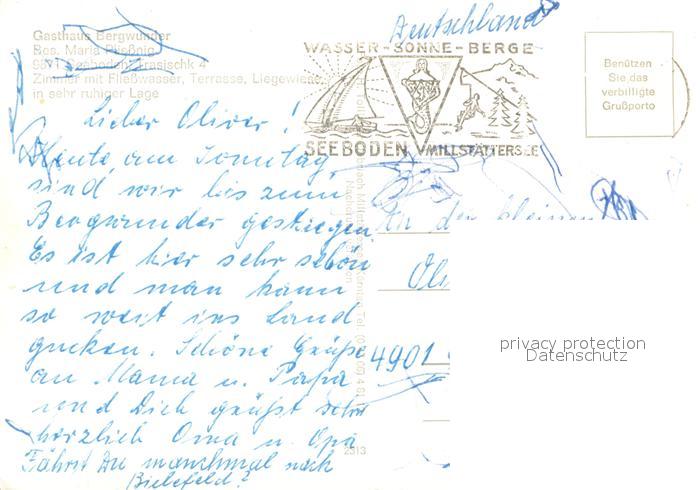 Deutschland
Gasthaus Bergwunder
Bes. Maria
9871 Seeboden, Tresischk 4
Zimmer mit Fließwasser, Terrasse, Liegewiese,
in sehr ruhiger Lage
WASSER-SONNE-BERGE
SEEBODEN MILLSTÄTTERSEE
Benützen
Sie das
verbilligte
Grußporto
Lieber Oliver!
Heute, am Sonntag,
sind wir bis zum
Bergwunder gestiegen.
Es ist hier sehr schön
und man kann
so weit ins Land
gucken. Schöne Grüße
an Mama u. Papa
und Dich grüßt sehr
herzlich Oma u. Opa
Fährst Du manchmal nach
Bielefeld?
An den kleinen
Oli
4901
2313
privacy protection
Datenschutz